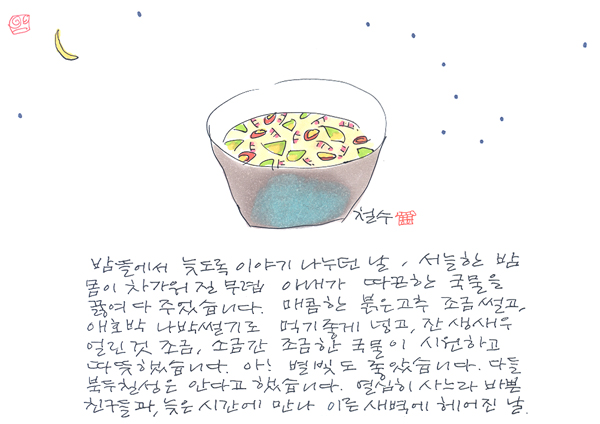 철수
밤뜰에서 늦도록 이야기 나누던 날, 서늘한 밤
몸이 차가워 질 무렵 아내가 따끈한 국물을
끓여다 주었습니다. 매콤한 붉은고추 조금썰고,
애호박 나박썰기로 먹기좋게 넣고, 잔 생새우
얼린것 조금, 소금간 조금한 국물이 시원하고
따뜻했습니다. 아! 별빛도 좋았습니다. 다들
북두칠성은 안다고 했습니다. 열심히 사느라 바쁜
친구들과, 늦은 시간에 만나 이른새벽에 헤어진 날.